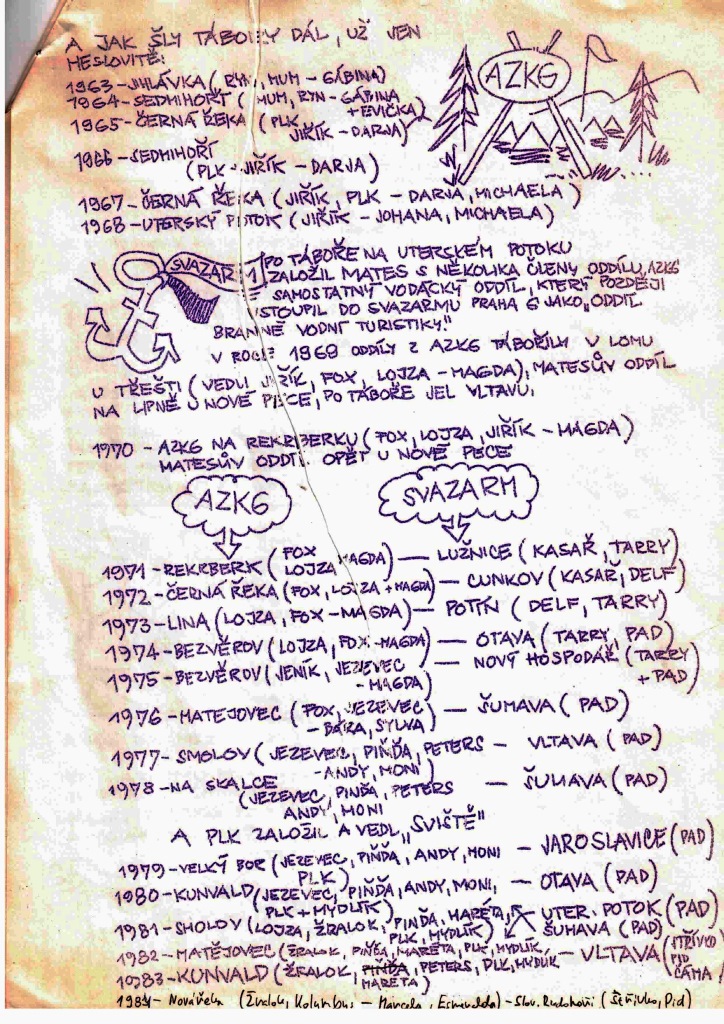 A JAK ŠLY TÁBORY DÁL, UŽ JEN
HESLOVITĚ:
AZK6
1963 - JIHLÁVKA (RYN, MUM - GÁBINA)
1964 - SEDMIHOŘÍ (MUM, RYN - GÁBINA
+ EVIČKA)
1965 - ČERNÁ ŘEKA (PLK,
JIŘÍK - DARJA)
1966 - SEDMIHOŘÍ
(PLK - JIŘÍK - DARJA)
1967 - ČERNÁ ŘEKA (JIŘÍK, PLK - DARJA, MICHAELA)
1968 - UTERSKÝ POTOK (JIŘÍK - JOHANA, MICHAELA)
SVAZARM
PO TÁBOŘE NA UTERSKÉM POTOKU
ZALOŽIL MATES S NĚKOLIKA ČLENY ODDÍLU AZK6
SAMOSTATNÝ VODÁCKÝ ODDÍL, KTERÝ POZDĚJI
VSTOUPIL DO SVAZARMU PRAHA 6 JAKO „ODDÍL
BRANNÉ VODNÍ TURISTIKY."
V ROCE 1969 ODDÍLY Z AZK6 TÁBOŘILY V LOMU
U TŘEŠTI (VEDLI JIŘÍK, FOX, LOJZA - MAGDA), MATESŮV ODDÍL
NA LIPNĚ U NOVÉ PECE, PO TÁBOŘE JEL VLTAVU.
1970 - AZK6 NA REKRBERKU (FOX, LOJZA, JIŘÍK - MAGDA)
MATESŮV ODDÍL OPĚT U NOVÉ PECE
AZK6 SVAZARM
1971 - REKRBERK (FOX
LOJZA MAGDA) — LUŽNICE (KASAŘ, TARRY)
1972 - ČERNÁ ŘEKA (FOX, LOJZA + MAGDA) — CUNKOV (KASAŘ, DELF)
1973 - LINA (LOJZA, FOX - MAGDA) — POTÍN (DELF, TARRY)
1974 - BEZVĚROV (LOJZA, FOX - MAGDA) — OTAVA (TARRY, PAD)
1975 - BEZVĚROV (JENÍK, JEZEVEC
- MAGDA) — NOVÝ HOSPODÁŘ (TARRY
+ PAD)
1976 - MATEJOVEC (FOX, JEZEVEC
- BÁRA, SYLVA) — ŠUMAVA (PAD)
1977 - SMOLOV (JEZEVEC, PIŇĎA, PETERS
- ANDY, MONI) — VLTAVA (PAD)
1978 - NA SKALCE
(JEZEVEC, PIŇĎA, PETERS
ANDY, MONI — ŠUMAVA (PAD)
A PLK ZALOŽIL A VEDL „SVIŠTĚ"
1979 - VELKÝ BOR (JEZEVEC, PIŇĎA, ANDY, MONI
PLK) — JAROSLAVICE (PAD)
1980 - KUNVALD (JEZEVEC, PIŇĎA, ANDY, MONI,
PLK + MYDLÍK) — OTAVA (PAD)
1981 - SMOLOV (LOJZA, ŽRALOK, PIŇĎA, MARETA,
PLK, MYDLÍK) UTER. POTOK (PAD)
ŠUMAVA (PAD)
1982 - MATĚJOVEC (ŽRALOK, PIŇĎA, MARETA, PLK, MYDLÍK, — VLTAVA (STŘÍVKO
PID
ČÁMA)
1983 - KUNVALD (ŽRALOK, PIŇĎA, PETERS, PLK, MYDLÍK
MARETA)
1984 - (Žralok, Kolumbus - Marcela, Esmeralda) - Slov. Rudohoří (Pid)